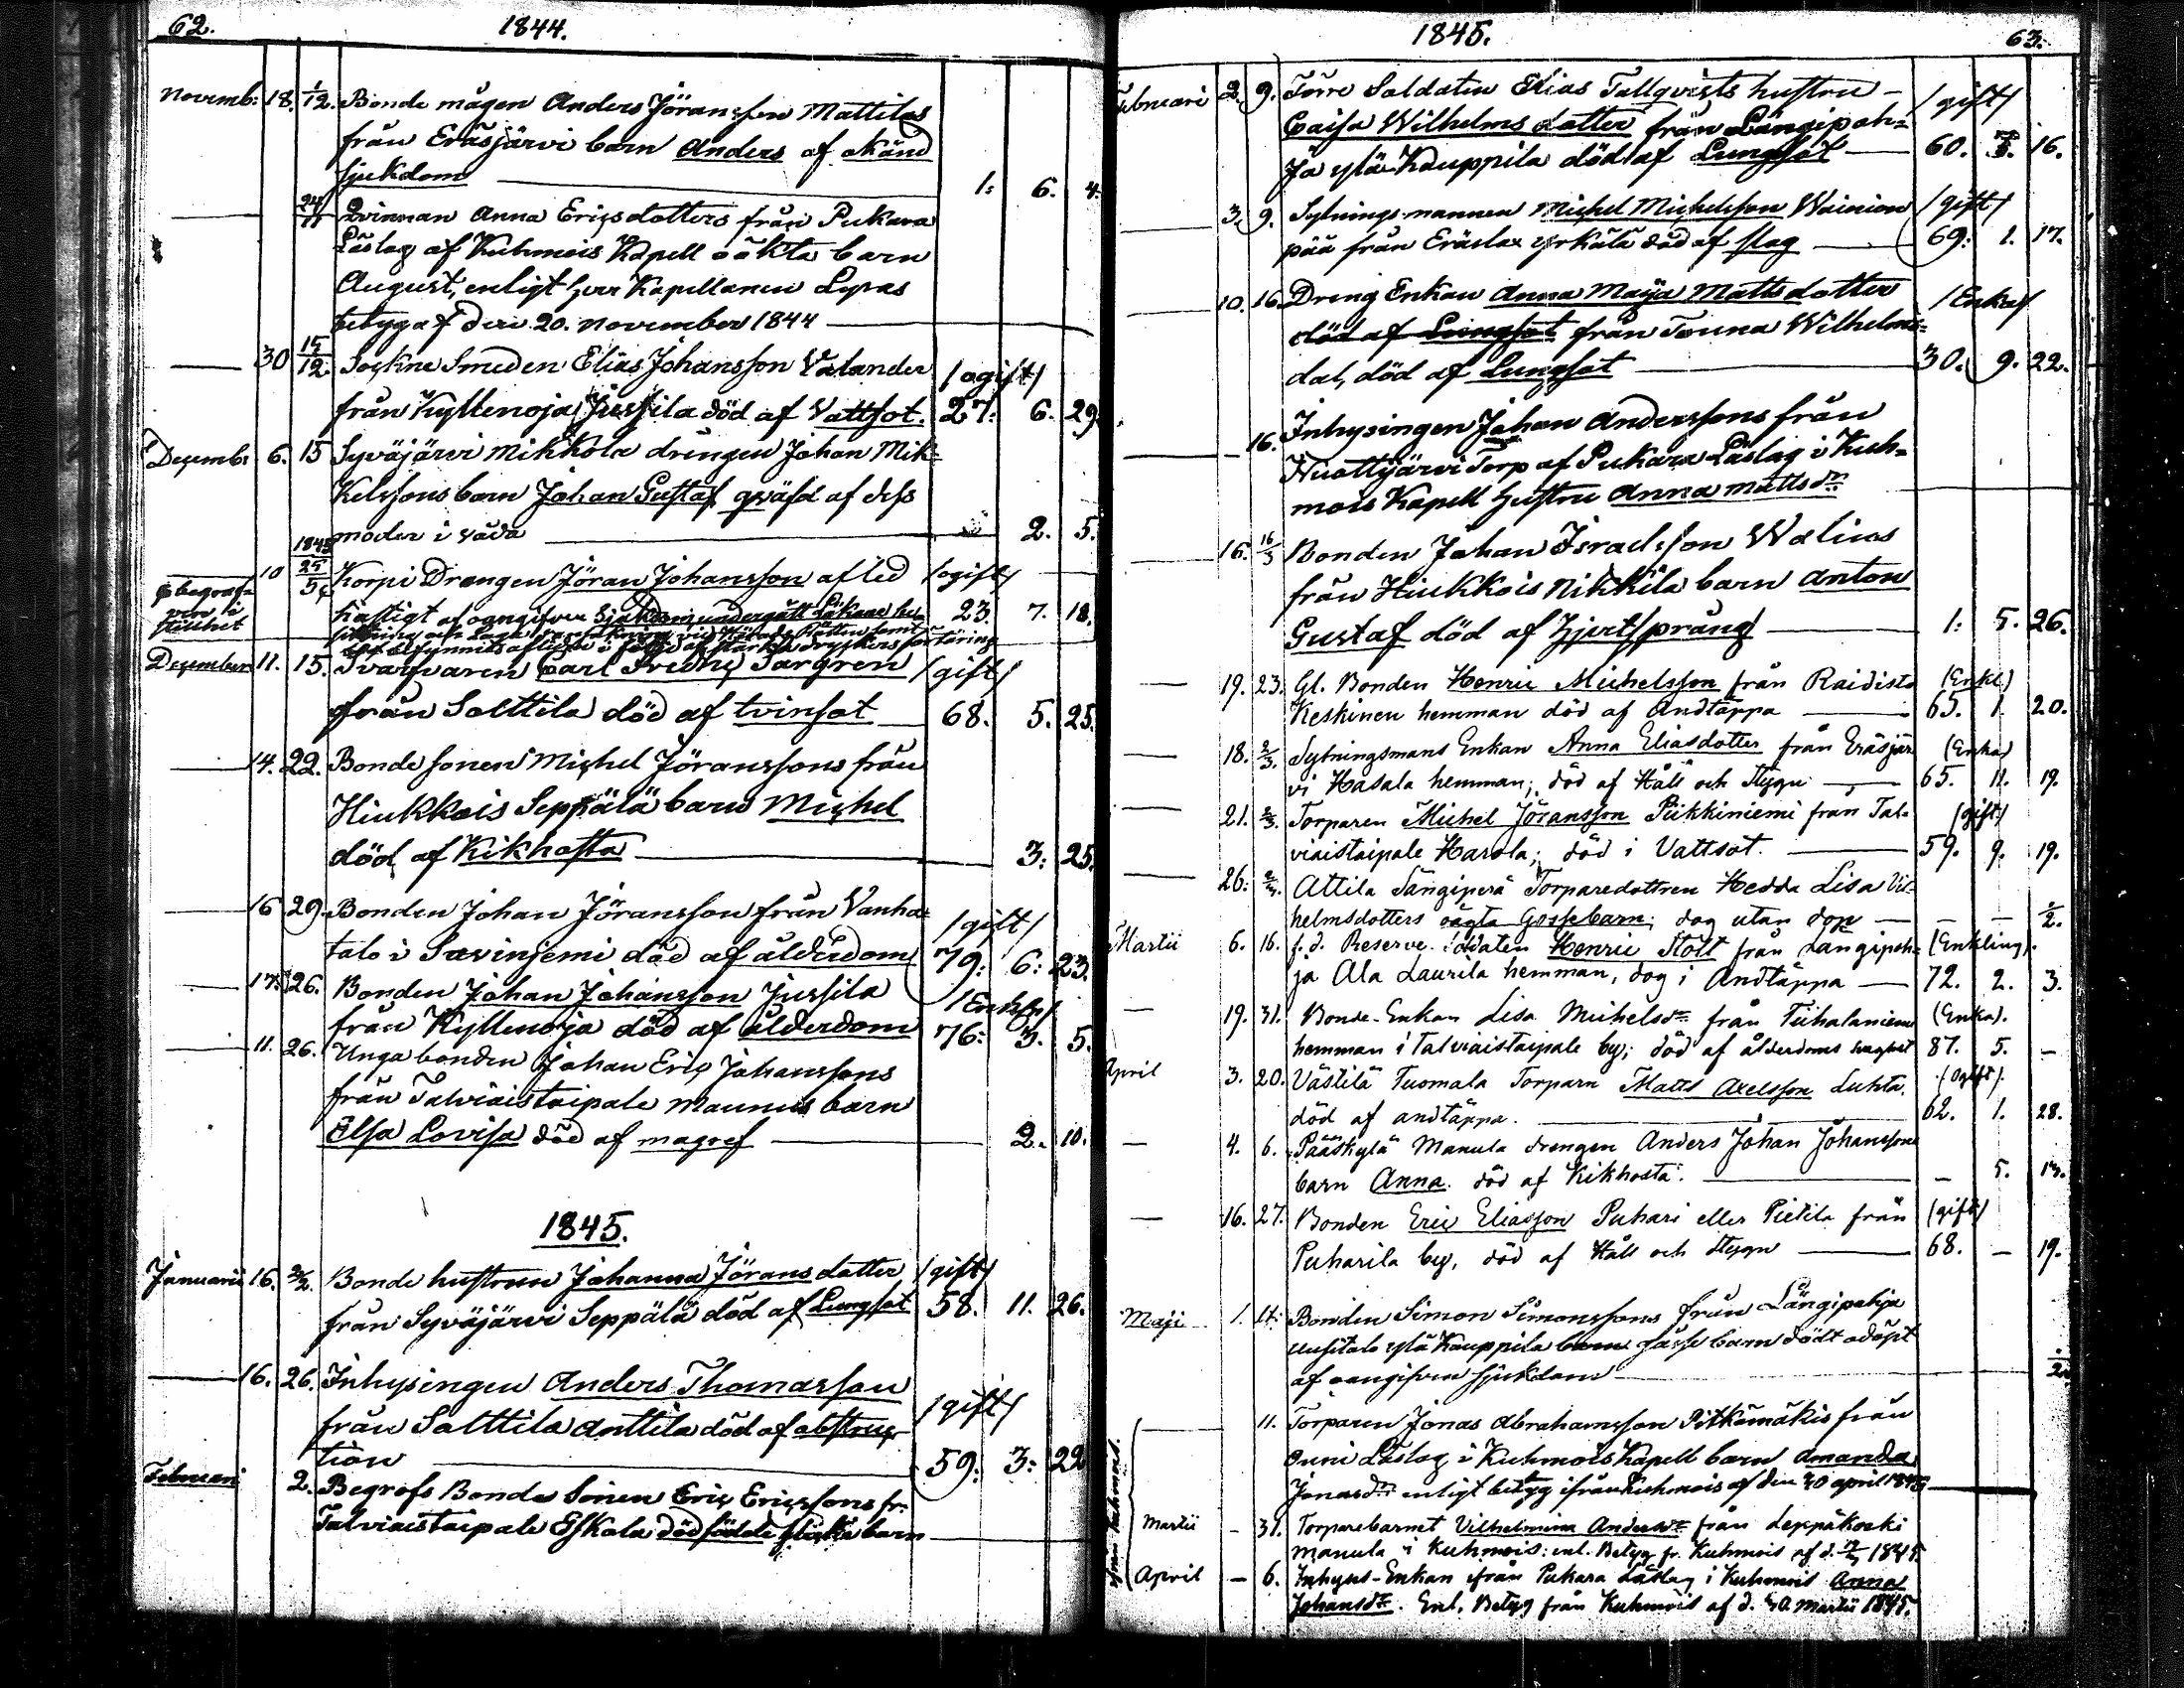 62. 1844.
Novemb: 18. 1/12. Bonde mågen Anders Jöransson Mattilas
från Eräsjärvi barn Anders af okänd
sjukdom 1: 6. 4.
24/11 Qvinnan Anna Ericsdotters från Pukara
Läslag af Kuhmois Kapell oäkta barn
August, enligt Herr Kapellanen Lyras
betyg af den 20. November 1844
30 15/12 Sockne Smeden Elias Johansson Valander /ogift/
från Kyllenoja Jussila död af Vattsot. 27. 6. 29.
Decemb: 6. 15 Syväjärvi Mikkola drengen Johan Mik=
kelssons barn Johan Gustaf qväfd af dess
moder i våda 2. 5.
1845
10 25/5 Korpi Drengen Jöran Johansson afled /ogift/
begraf=
ven i
stillhet
hastigt af 23. 7. 18.
December 11. 15. Svarfvaren Carl Fredric Targren /gift/
från Salttila död af tvinsot 68. 5. 25.
14. 22. Bonde sonen Michel Jöranssons från
Hiukkois Seppälä barn Michel
död af Kikhosta 3: 25.
16 29. Bonden Johan Jöransson från Vanha=
talo i Savinjemi död af ålderdom /gift/ 79: 6: 23.
17. 26. Bonden Johan Johansson Jussila /Enkl/
från Kyllenoja död af ålderdom 76: 3. 5.
11. 26. Unga bonden Johan Eric Johanssons
från Talviaistaipale Maunus barn
Elsa Lovisa död af magref 2. 10.
1845.
Januarii 16. 2/2. Bonde hustrun Johanna Jörans dotter /gift/
från Syväjärvi Seppälä död af Lungsot 58. 11. 26.
16. 26. Inhysingen Anders Thomasson
från Salttila Anttila död af obstruc= /gift/
tion 59: 3: 22
Februari 2. Begrofs Bonde Sonen Eric Ericssons fr.
Talviaistaipale Eskola dödfödde flicke barn
1845. 63.
Februari 2. 9. Förre Soldaten Elias Tallqvists hustru /gift/
Caisa Wilhelms dotter från Längipoh=
ja ylä Kauppila död af Lungsot 60. 16.
3. 9. Sytnings mannen Michel Michelsson Wainion /gift/
pää från Eräslax yrkälä död af slag 69: 1. 17.
10. 16. Dreng Enkan Anna Maija Matts dotter /Enka/
död af Lungsot från Touna Wilhelms=
dal, död af Lungsot 30. 9. 22.
16. Inhysingen Johan Anderssons från
Huottjärvi Torp af Pukara Läslag i Kuh=
mois Kapell hustru Anna Mattsdr
16. 16/3 Bonden Johan Israelsson Walius
från Hiukkois Nikkilä barn Anton
Gustaf död af hjertsprång 1: 5. 26.
19. 23. Gl. Bonden Henric Michelsson från Raidisto (Enkl.)
Keskinen hemman död af Andtäppa 65. 1. 20.
18. 2/3. Sytningsmans Enkan Anna Eliasdotter från Eräsjär= (Enka)
vi Hasala hemman; död af Håll och Stygn 65. 11. 19.
21. 2/3. Torparen Michel Jöransson Piikkiniemi från Tal= (gift)
viaistaipale Harola; död i Vattsot. 59. 9. 19.
26: 2/3. Attila Sängiperä Torparedottren Hedda Lisa Vil=
helmsdotters oägta Gossebarn; dog utan dop — — 1/2.
Martii 6. 16. f.d. Reserve soldaten Henric Stolt från Längipoh= (Enkling).
ja Ala Laurila hemman, dog i Andtäppa 72. 2. 3.
19. 31. Bonde-Enkan Lisa Michelsdr från Tiihalaniemi (Enka).
hemman i Talviaistaipale by; död af ålderdoms svaghet 87. 5. —
April 3. 20. Västilä Tuomala Torparn Matts Axelsson Luhta. (ogift).
död af andtäppa. 62. 1. 28.
4. 6. Pääskylä Manula drengen Anders Johan Johanssons
barn Anna. död af Kikhosta. — 5. 13.
16. 27. Bonden Eric Eliasson Puhari eller Pietila från (gift)
Puharila by, död af Håll och Stygn 68. — 19.
Maji 1. 4. Bonden Simon Simonssons från Längipohja
uusitalo ylä Kauppila barn gosse barn dödt odöpt
af oangifven sjukdom 1/2
från Kuhmois.
11. Torparen Jonas Abrahamsson Pitkämäkis från
Ouni Läslag i Kuhmois Kapell barn Amanda
Jonasdr enligt betyg ifrån Kuhmois af den 30 april 1845
Martii - 31. Torparebarnet Vilhelmina Andersdr från Leppäkoski
Manula i Kuhmois: enl. Betyg fr. Kuhmois af d. 1845.
April - 6. Inhyses-Enkan ifrån Pukara Läslag i Kuhmois Anna
Johansdr. Enl. Betyg från Kuhmois af d. 30 Martii 1845.